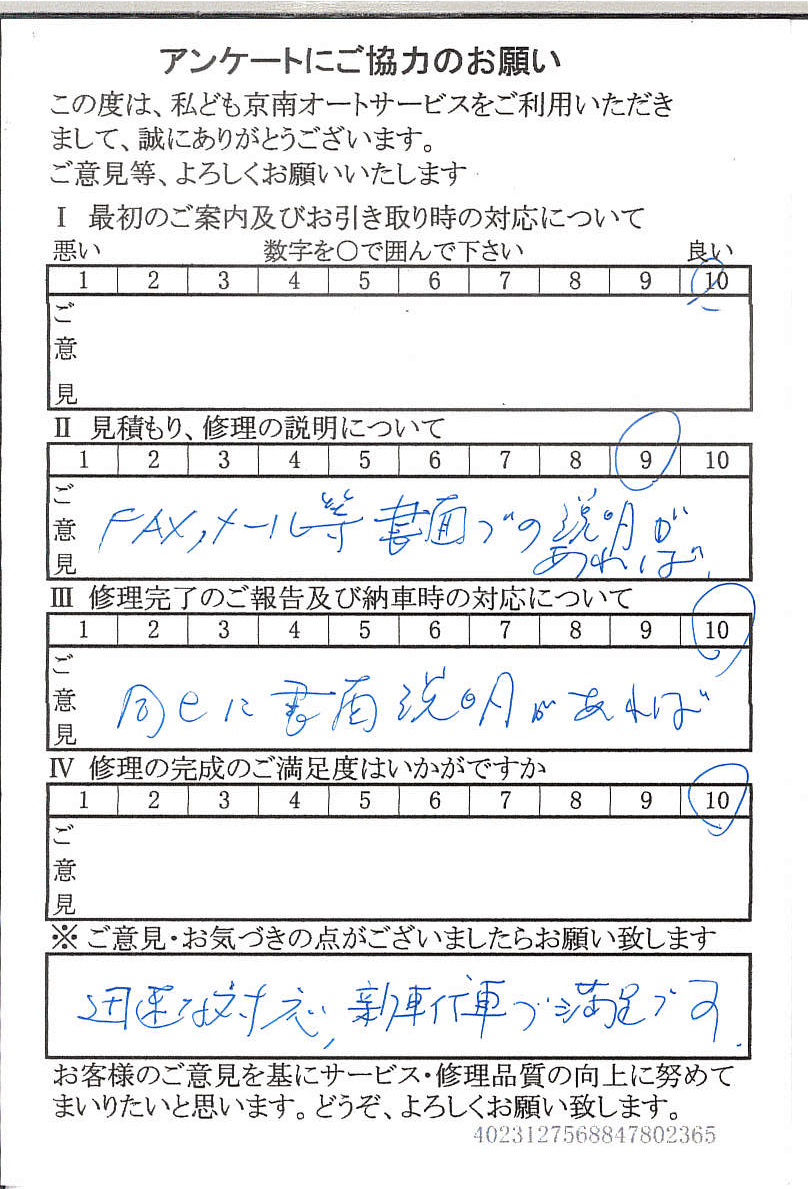 アンケートにご協力のお願い
この度は、私ども京南オートサービスをご利用いただき
まして、誠にありがとうございます。
ご意見等、よろしくお願いいたします
Ⅰ 最初のご案内及びお引き取り時の対応について
悪い 数字を〇で囲んで下さい 良い
1 2 3 4 5 6 7 8 9 10
ご意見
Ⅱ 見積もり、修理の説明について
1 2 3 4 5 6 7 8 9 10
ご意見
FAX,メール等書面での説明が
あれば.
Ⅲ 修理完了のご報告及び納車時の対応について
1 2 3 4 5 6 7 8 9 10
ご意見
同じに書面説明があれば
Ⅳ 修理の完成のご満足度はいかがですか
1 2 3 4 5 6 7 8 9 10
ご意見
※ ご意見・お気づきの点がございましたらお願い致します
迅速な対応,新車代車で満足です.
お客様のご意見を基にサービス・修理品質の向上に努めて
まいりたいと思います。どうぞ、よろしくお願い致します。
4023127568847802365